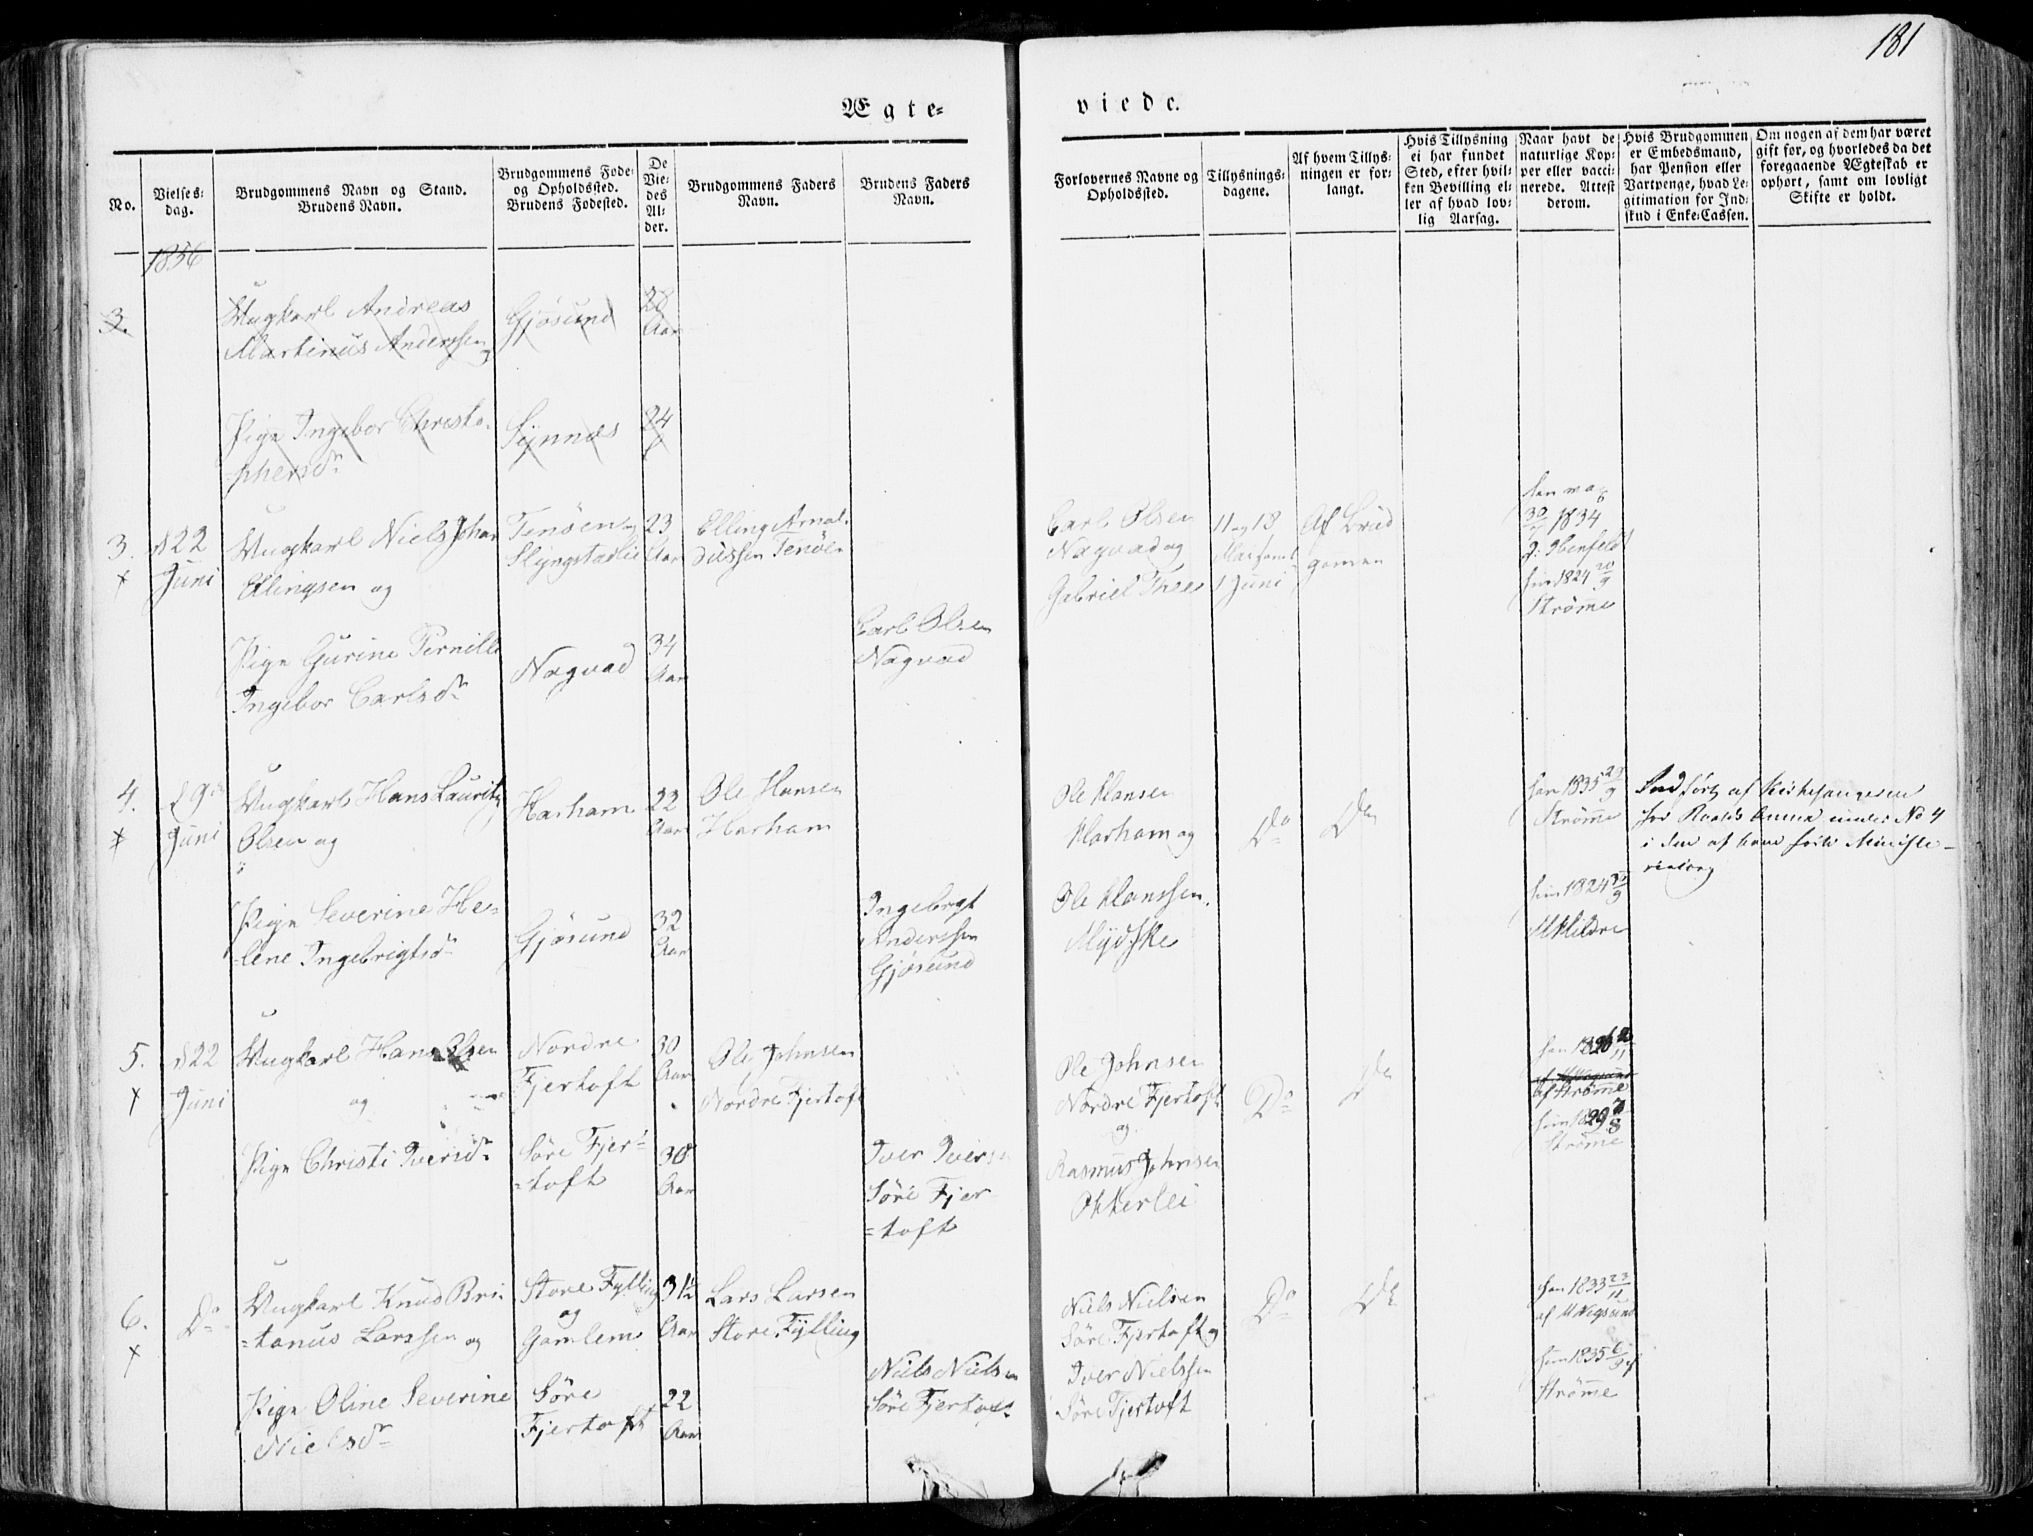 181
Ægte=
viede.
No.
Vielses-
dag.
Brudgommens Navn og Stand.
Brudens Navn.
Brudgommens Føde-
og Opholdssted.
Brudens Fødested.
De
Vie-
des
Al-
der.
Brudgommens Faders
Navn.
Brudens Faders
Navn.
Forlovernes Navne og
Opholdssted.
Tillysnings-
dagene.
Af hvem Tillys-
ningen er for-
langt.
Hvis Tillysning
ei har fundet
Sted, efter hvil-
ken Bevilling el-
ler af hvad lov-
lig Aarsag.
Naar havt de
naturlige Kop-
per eller vacci-
nerede. Attest
derom.
Hvis Brudgommen
er Embedsmand,
har Pension eller
Vartpenge, hvad Le-
gitimation for Ind-
skud i Enke-Cassen.
Om nogen af dem har været
gift før, og hvorledes da det
foregaaende Ægteskab er
ophørt, samt om lovligt
Skifte er holdt.
1856
3.
Ungkarl Andreas
Martinus Anderssen
og
Gjøsund
28
Aar
Pige Ingebor Christo-
phersdr
Synnæs
24
3.
d 22
Juni
Ungkarl Niels Johan
Ellingsen og
Tenøen og
Slyngstadlie
23
Aar
Elling Arnol-
dussen Tenøen
Carl Olsen
Nogvad og
Gabriel Thee
11 og 18
Mai samt
1 Juni
Af Brud
gomen
30 1834
han 1824 20/9
Strøme
Pige Gurine Pernille
Ingebor Carlsdr
Nogvad
34
Aar
Carl Olsen
Nogvad
4.
29de
Juni
Ungkarl Hans Lauritz
Olsen og
Harham
22
Aar
Ole Hansen
Harham
Ole Hansen
Harham og
Do
Do
han 1835
Strøme
Indført af Kirkesangeren
for Roalds Annex under No 4
i den af ham førte Ministe-
rialbog
Pige Severine He-
lene Ingebrigtsdr
Gjøsund
32
Aar
Ingebrgt
Anderssen
Gjøsund
Ole Hanssen
Mydske
hun 1824
MKildre
5.
d 22
Juni
Ungkarl Hans Olsen
og
Nordre
Fjertoft
30
Aar
Ole Johnsen
Nordre Fjertoft
Ole Johnsen
Nordre Fjertoft
og
Do
Do
han 1826
af Strøme
hun 1829
Strøme
Pige Christi Iversdr
Søre Fjer-
=toft
30
Aar
Iver Iversen
Søre Fjer-
=toft
Rasmus Johnsen
Okkerlei
6.
Do
Ungkarl Knud Bri-
=tanus Larssen og
Store Fylling
og
Gamlem
31½
Aar
Lars Larsen
Store Fylling
Niels Nielsen
Søre Fjertoft og
Do
Do
han 1833 23/11
af MNogsund
hun 1835 6/9 af
Strøme
Pige Oline Severine
Nielsdr
Søre
Fjertoft
22
Aar
Niels Nielsen
Søre Fjertoft
Iver Nielssen
Søre Fjertoft